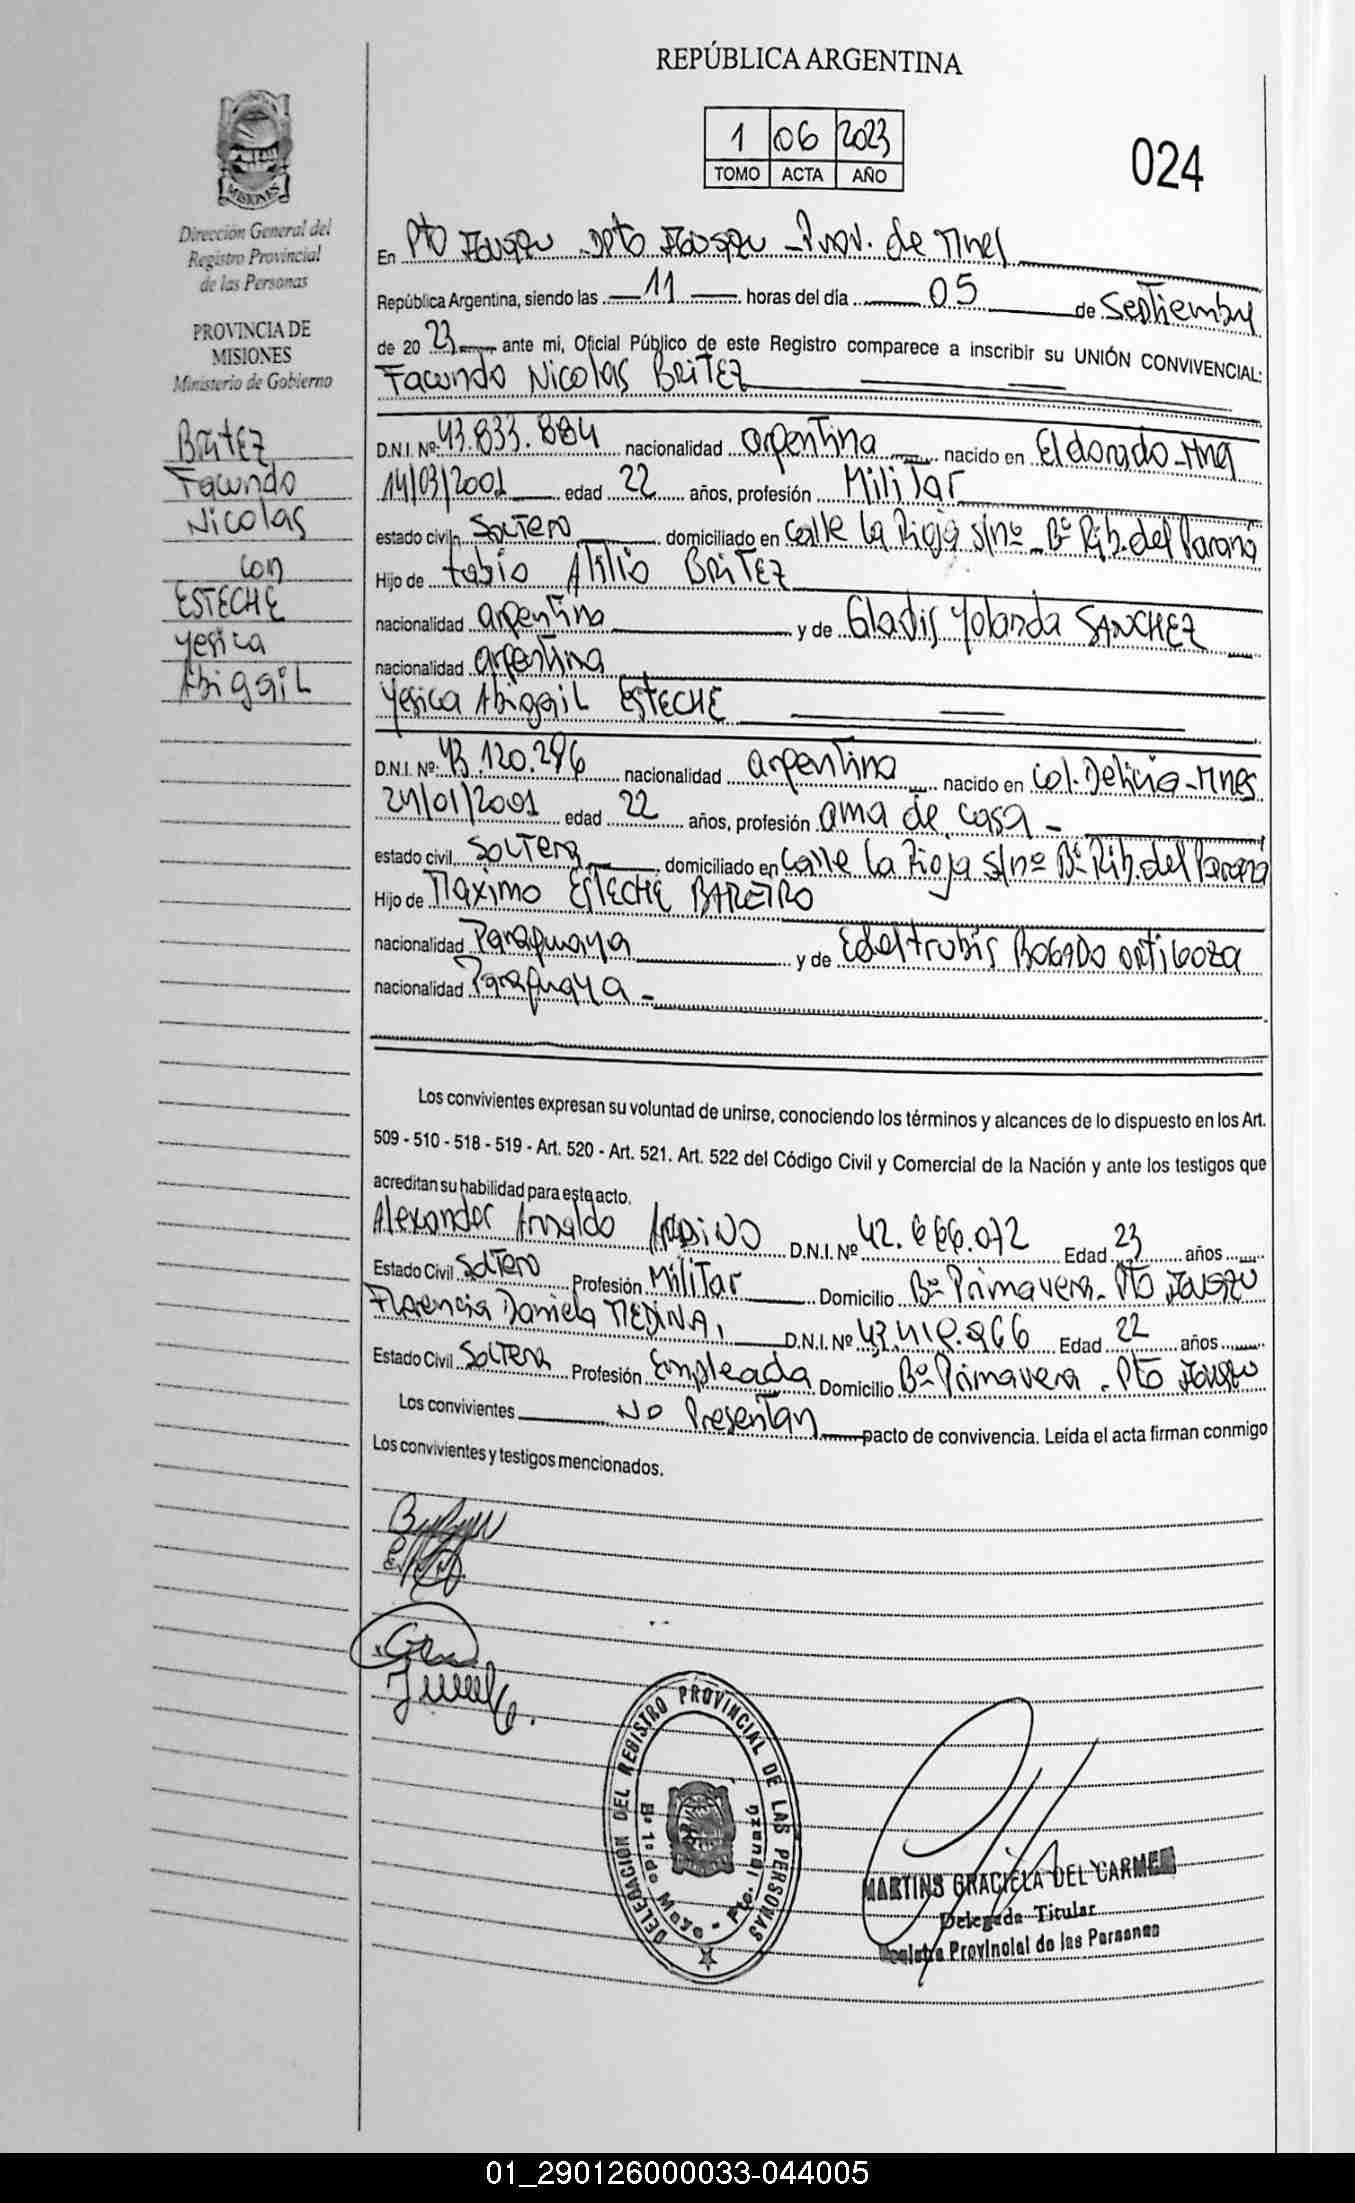 REPÚBLICA ARGENTINA
1 06 2023
TOMO ACTA AÑO
024
MISIONES
Dirección General del
Registro Provincial
de las Personas
PROVINCIA DE
MISIONES
Ministerio de Gobierno
BRITEZ
Facundo
Nicolas
con
ESTECHE
Yesica
Abigail
En Pto Iguazu - Dpto Iguazu - Prov. de Mnes
República Argentina, siendo las 11 horas del día 05 de Septiembre
de 20 23 ante mí, Oficial Público de este Registro comparece a inscribir su UNIÓN CONVIVENCIAL:
Facundo Nicolas BRITEZ
D.N.I. Nº 43.833.884 nacionalidad argentina nacido en Eldorado - Mnes
14/03/2001 edad 22 años, profesión Militar
estado civil Soltero domiciliado en Calle La Rioja s/nº - Bº Rib. del Parana
Hijo de Fabio Atilio BRITEZ
nacionalidad argentina y de Gladis Yolanda SANCHEZ
nacionalidad argentina
Yesica Abigail ESTECHE
D.N.I. Nº 43.120.296 nacionalidad argentina nacido en Col. Delicia - Mnes
24/01/2001 edad 22 años, profesión ama de casa -
estado civil Soltera domiciliado en Calle La Rioja s/nº Bº Rib. del Parana
Hijo de Maximo ESTECHE BAREIRO
nacionalidad Paraguaya y de Edeltrudis BOGADO ORTIGOZA
nacionalidad Paraguaya -
Los convivientes expresan su voluntad de unirse, conociendo los términos y alcances de lo dispuesto en los Art.
509 - 510 - 518 - 519 - Art. 520 - Art. 521. Art. 522 del Código Civil y Comercial de la Nación y ante los testigos que
acreditan su habilidad para este acto.
Alexander Arnaldo D.N.I. Nº 42.666.072 Edad 23 años
Estado Civil Soltero Profesión Militar Domicilio Bº Primavera - Pto Iguazu
Florencia Daniela MEDINA, D.N.I. Nº Edad 22 años
Estado Civil Soltera Profesión Empleada Domicilio Bº Primavera - Pto Iguazu
Los convivientes No Presentan pacto de convivencia. Leída el acta firman conmigo
Los convivientes y testigos mencionados.
DELEGACION DEL REGISTRO PROVINCIAL DE LAS PERSONAS
Bº 1º de Mayo - Pto. Iguazú
MARTINS GRACIELA DEL CARMEN
Delegada Titular
Registro Provincial de las Personas
01_290126000033-044005